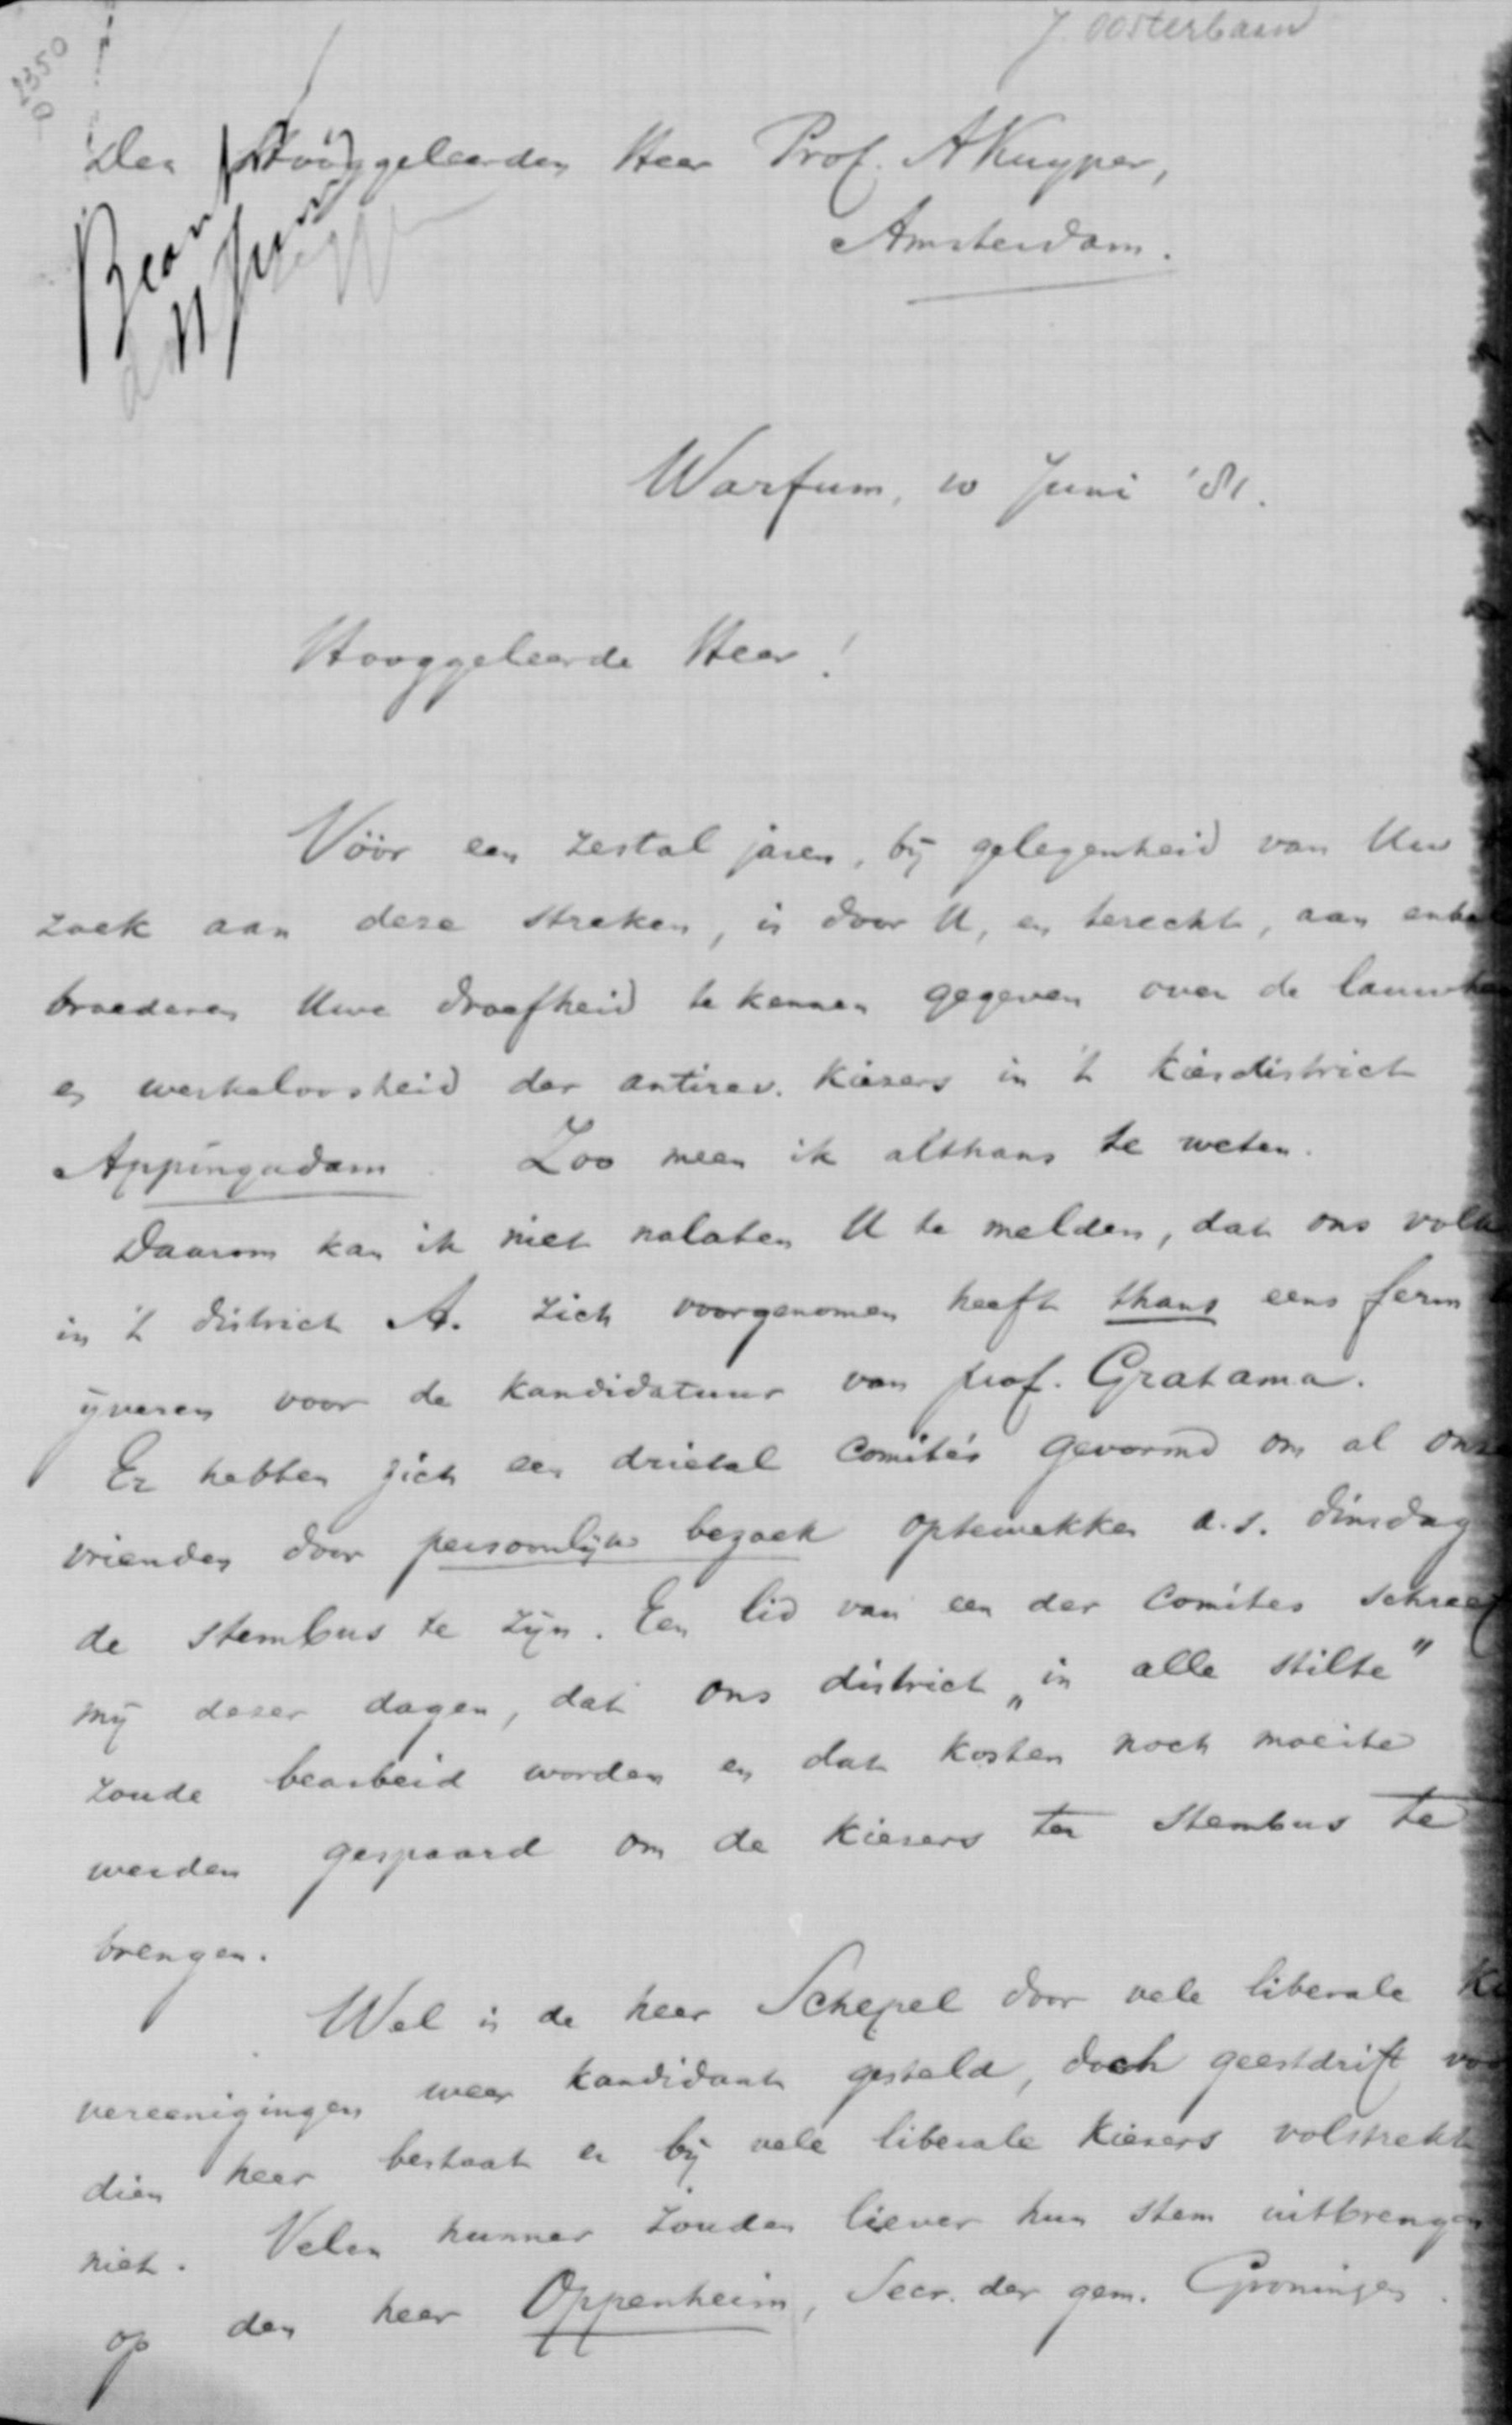 J. Oosterbaan
2350
Den Hooggeleerden Heer Prof. AKuyper,
Amsterdam.
Warfum, 10 Juni '81.
Hooggeleerde Heer!
Vóór een zestal jaren, bij gelegenheid van Uw
zoek aan deze streken, is door U, en terecht, aan enke
broederen Uwe droefheid te kennen gegeven over de lauwhe
en werkeloosheid der antirev. kiezers in 't kiesdistrict
Appingadam. Zoo meen ik althans te weten.
Daarom kan ik niet nalaten U te melden, dat ons volk
in 't district A. zich voorgenomen heeft thans eens ferm
ijveren voor de kandidatuur van prof. Gratama.
Er hebben zich een drietal comités gevormd om al onze
vrienden door persoonlijk bezoek optewekken a.s. dinsdag
de stembus te zijn. Een lid van een der comites schreef
mij dezer dagen, dat ons district „in alle stilte"
zoude bearbeid worden en dat kosten noch moeite
werden gespaard om de kiezers ter stembus te
brengen.
Wel is de heer Schepel door vele liberale K
vereenigingen weer kandidaat gesteld, doch geestdrift voo
dien heer bestaat er bij vele liberale kiezers volstrekt
niet. Velen hunner zouden liever hun stem uitbrengen
op den heer Oppenheim, Secr. der gem. Groningen.